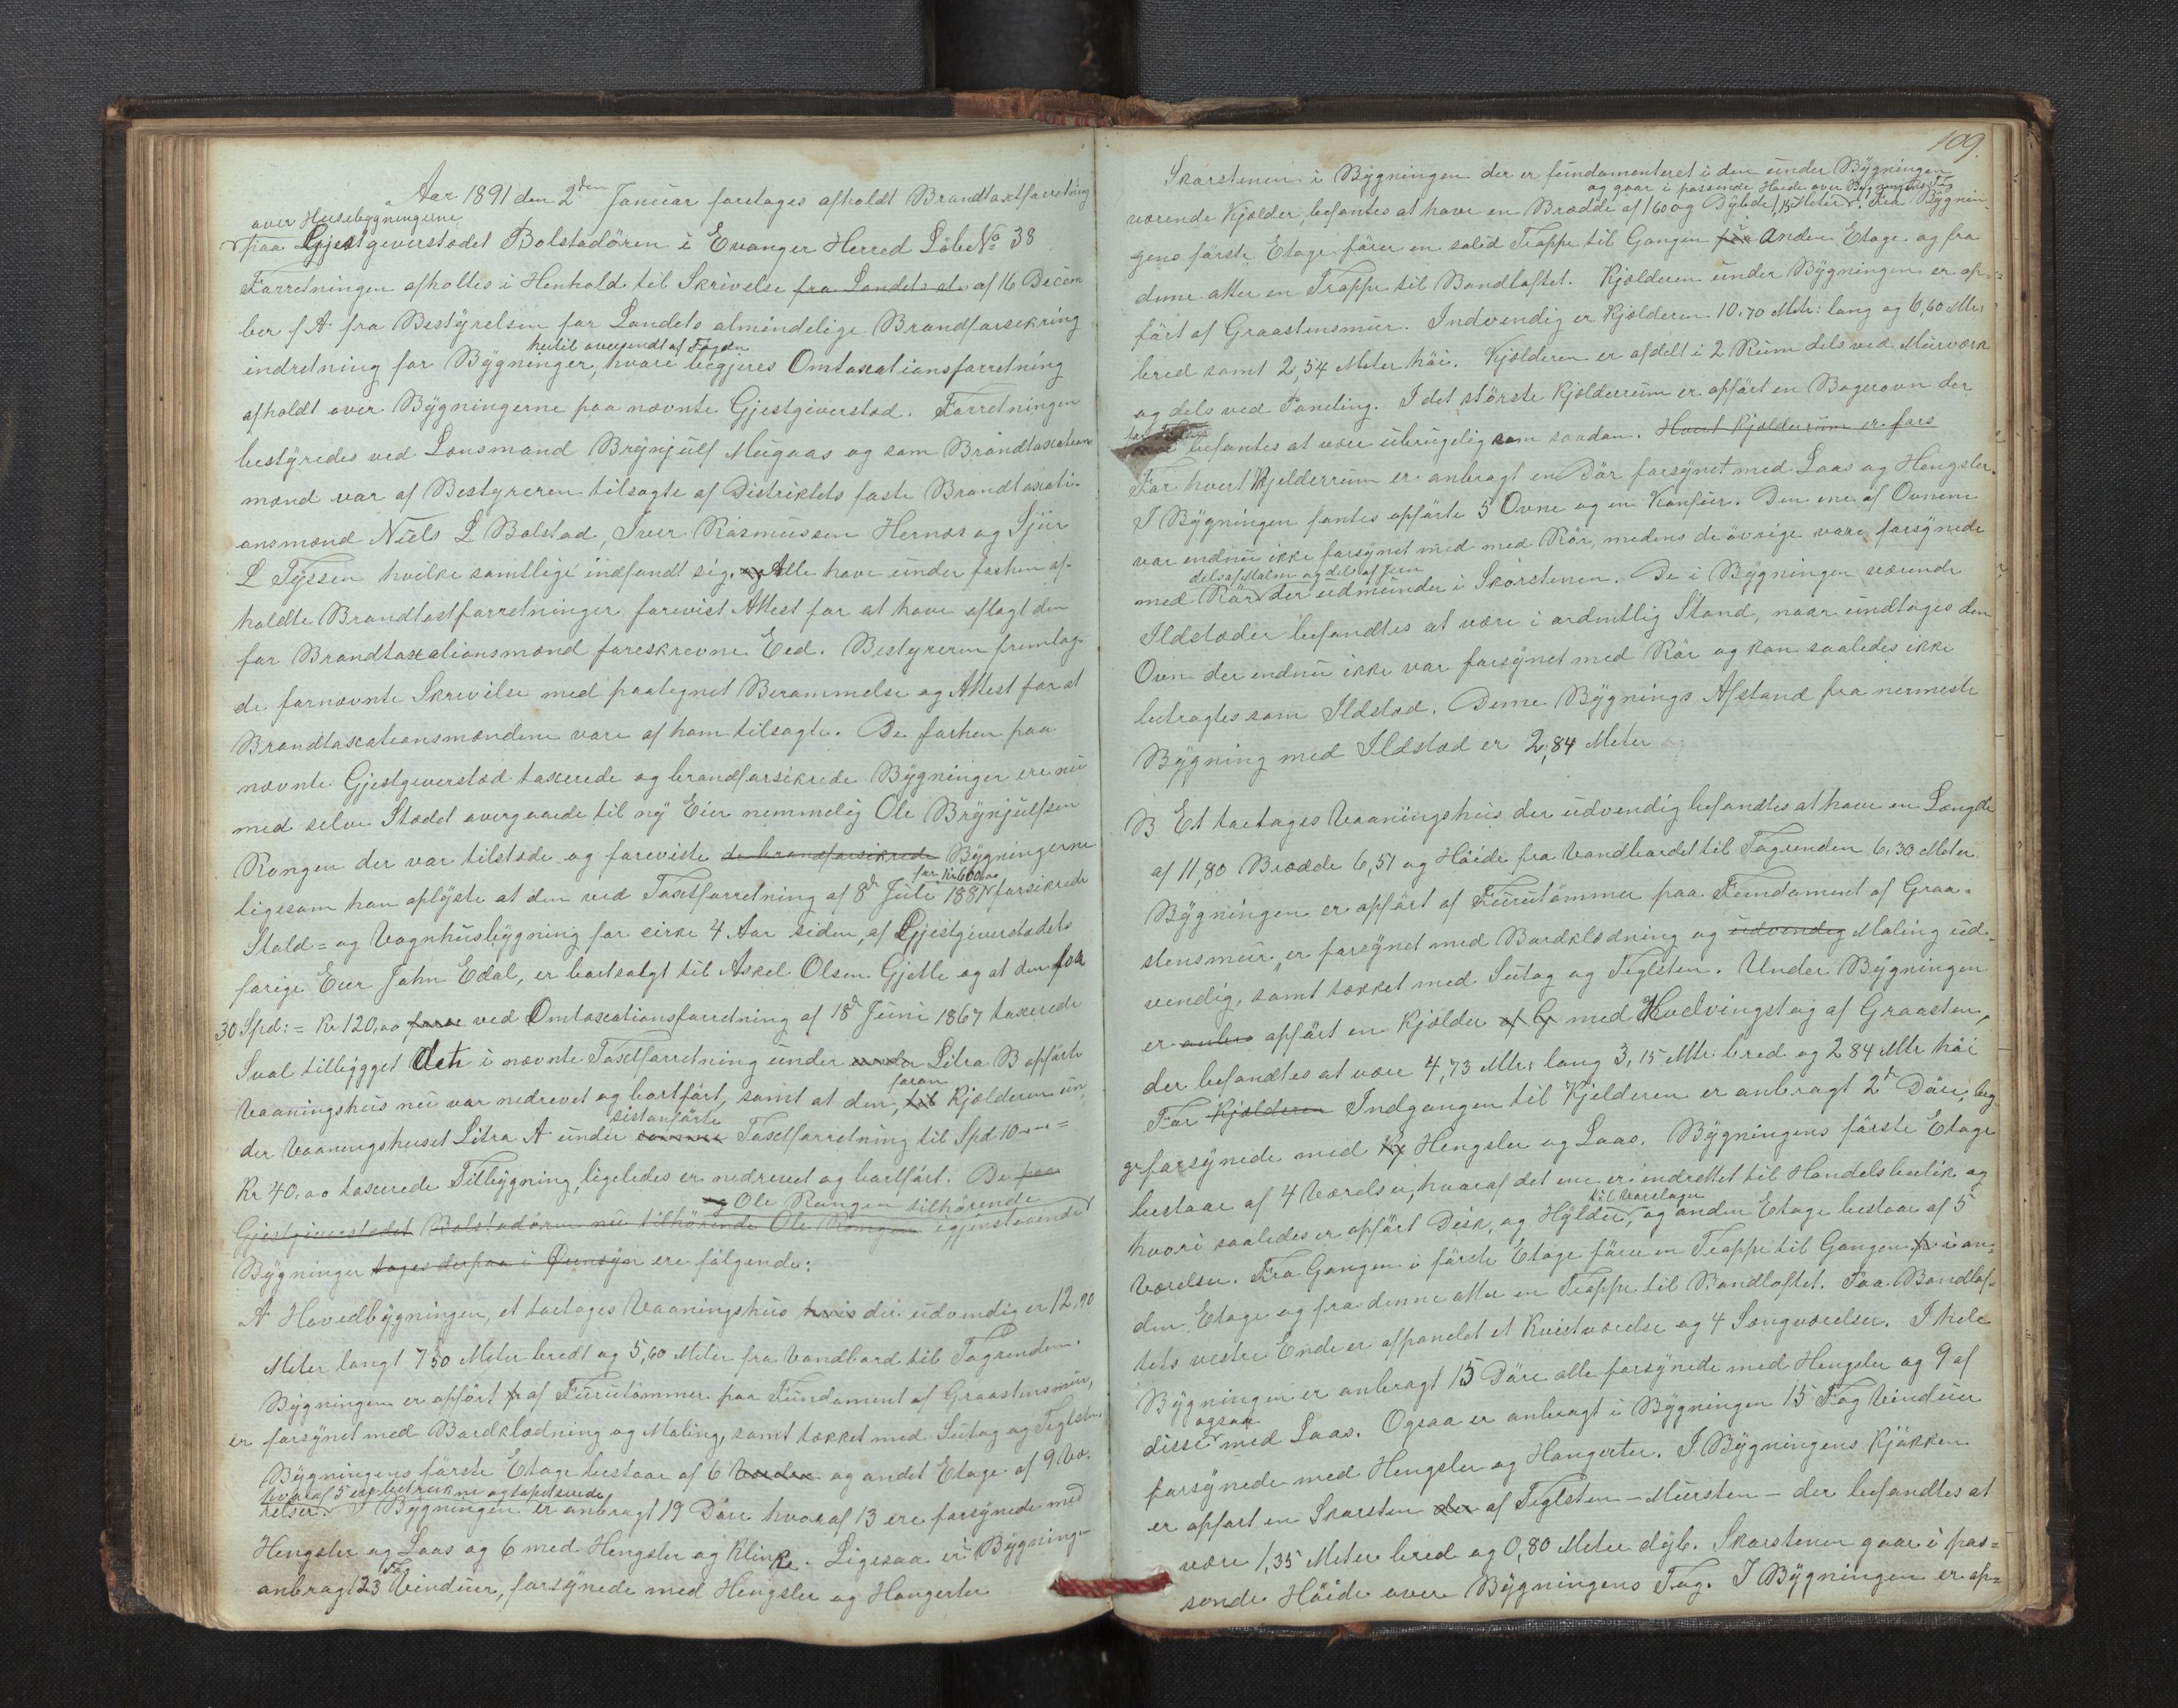 Aar 1891 den 2den Januar foretages afholdt Brandtaxtforretning
over Husebygningerne
paa Gjestgeverstedet Bolstadören i Evanger Herred Löbe No 38
Forretningen afholtes i Henhold til Skrivelse fra Landets alm af 16 Decem
ber f A fra Bestyrelsen for Landets almindelige Brandforsikring
hertil oversendt af Fogden
indretning for Bygninger, hvori begjeres Omtaxationsforretning
afholdt over Bygningerne paa nævnte Gjestgiverstad. Forretningen
bestyredes ved Lensmand Brynjulf Mugaas og som Brandtaxations
mænd var af Bestyreren tilsagte af Distriktets faste Brandtaxati-
onsmænd Niels L Bolstad, Iver Rasmussen Hernes og Sjur
L Fyssen hvilke samtlige indfandt sig. og Alle have under forhen af-
holdte Brandtaxtforretninger forevist Attest for at have aflagt den
for Brandtaxationsmænd foreskrevne Eed. Bestyreren fremlag-
de fornævnte Skrivelse med paategnet Berammelse og Attest for at
Brandtaxationsmændene vare af ham tilsagte. De forhen paa
nævnte Gjestgeverstad taxerede og brandforsikrede Bygninger ere nu
med selve Stedet overgaaede til ny Eier nemmelig Ole Brynjulfsen
Rongen der var tilstede og foreviste de brandforsikrede Bygningerne
for Kr 600,00
ligesom han oplyste at den ved Taxtforretning af 8de Juli 1881 forsikrede
Stald- og Vognhusbygning for cirka 4 Aar siden, af Gjestgiverstedets
forige Eier John Edal, er bortsolgt til Askel Olsen Gjelle og at den for
30 Spd: = Kr 120,00 foran ved Omtaxationsforretning af 18de Juni 1867 taxerede
Sval tilbygget det i nævnte Taxtforretning under under Litra B opförte
Vaaningshus nu var nedrevet og bortfört, samt at den, til Kjelderen un-
foran
sistanförte
der Vaaningshuset Litra A under samme Taxtforretning til Spd 10 =
Kr 40,00 taxerede Tilbygning, ligeledes er nedrevet og bortfört. De paa
og Ole Rongen tilhörende
Gjestgiverstedet Bolstadören nu tilhörende Ole Rongen igjenstaaende
Bygninger tages derpaa i Öiensyn ere fölgende:
A Hovedbygningen, et toetages Vaaningshus hvis der udvendig er 12,90
Meter langt 7 50 Meter bredt og 5,60 Meter fra Vandbord til Tagrenden.
Bygningen er opfört pr af Furutömmer paa Fundament af Graastensmur,
er forsynet med Bordklædning og Maling, samt tækket med Sutag og Teglsten.
Bygningens förste Etage bestaar af 6 Værelser og andet Etage af 9 Væ-
hvoraf 5 ere betrukne og tapetserede
relser. I Bygningen er anbragt 19 Döre hvoraf 13 ere forsynede med
Hengsler og Laas og 6 med Hengsler og Klinke. Ligesaa er i Bygningen
Fag
anbragt 23 Vinduer, forsynede med Hengsler og Hangerter
109.
Skorstenen i Bygningen der er fundamenteret i den under Bygningen
og gaar i passende Höide over Bygningens Tag
værende Kjelder, befantes at have en Brædde af 1 60 og Dybde 1,15 Meter. Fra Bygnin-
gens förste Etage förer en solid Trappe til Gangen fra Anden Etage og fra
denne atter en Trappe til Bondloftet. Kjelderen under Bygningen er op-
fört af Graastensmur. Indvendig er Kjelderen 10,70 Mtr: lang og 6,60 Mtr:
bred samt 2,54 Meter höi. Kjelderen er afdelt i 2 Rum dels ved Murværk
og dels ved Paneling. I det störste Kjelderrum er opfört en Bagerovn der
befantes at være ubrugelig som saadan. Hvert Kjelderrum er fors
For hvert Kjelderrum er anbragt en Dör forsynet med Laas og Hengsler.
I Bygningen fantes opförte 5 Ovne og en Komfur. Den ene af Ovnene
var endnu ikke forsynet med med Rör, medens de övrige vare forsynede
dels af Malm og dels af Jern
med Rör der udmunder i Skorstenen. De i Bygningen værende
Ildsteder befandtes at være i ordentlig Stand, naar undtages den
Ovn der endnu ikke var forsynet med Rör og kan saaledes ikke
betragtes som Ildsted. Denne Bygnings Afstand fra nermeste
Bygning med Ildsted er 2,84 Meter
B Et toetages Vaaningshus der udvendig befandtes at have en Længde
af 11,80 Brædde 6,51 og Höide fra Vandbordet til Tagrenden 6,30 Meter
Bygningen er opfört af Furutömmer paa Fundament af Graa-
stensmur, er forsynet med Bordklædning og udvendig Maling ud-
vendig, samt tækket med Sutag og Teglsten. Under Bygningen
er anbra opfört en Kjelder af G med Hvelvingstag af Graasten,
der befandtes at være 4,73 Mtr: lang 3,15 Mtr bred og 2 84 Mtr höi
For Kjelderen Indgangen til Kjelderen er anbragt 2de Döre, beg-
ge forsynede med Hengsler og Laas. Bygningens förste Etage
bestaar af 4 Værelser, hvoraf det ene er indrettet til Handelsbutik og
til Varelager
hvori saaledes er opfört Disk, og Hylder, og anden Etage bestaar af 5
Værelser. Fra Gangen i förste Etage förer en Trappe til Gangen fr i an-
den Etage og fra denne atter en Trappe til Bondloftet. Paa Bondlof-
tets vestre Ende er afpanelet et Kvistværelse og 4 Sængværelser. I hele
Bygningen er anbragt 15 Döre alle forsynede med Hengsler og 9 af
ogsaa
disse med Laas. Ogsaa er anbragt i Bygningen 15 Fag Vinduer
forsynede med Hengsler og Hangerter. I Bygningens Kjökken
er opfört en Skorsten der af Teglsten - Mursten - der befandtes at
være 1,35 Meter bred og 0,80 Meter dyb. Skorstenen gaar i pas-
sende Höide over Bygningens Tag. I Bygningen er op-